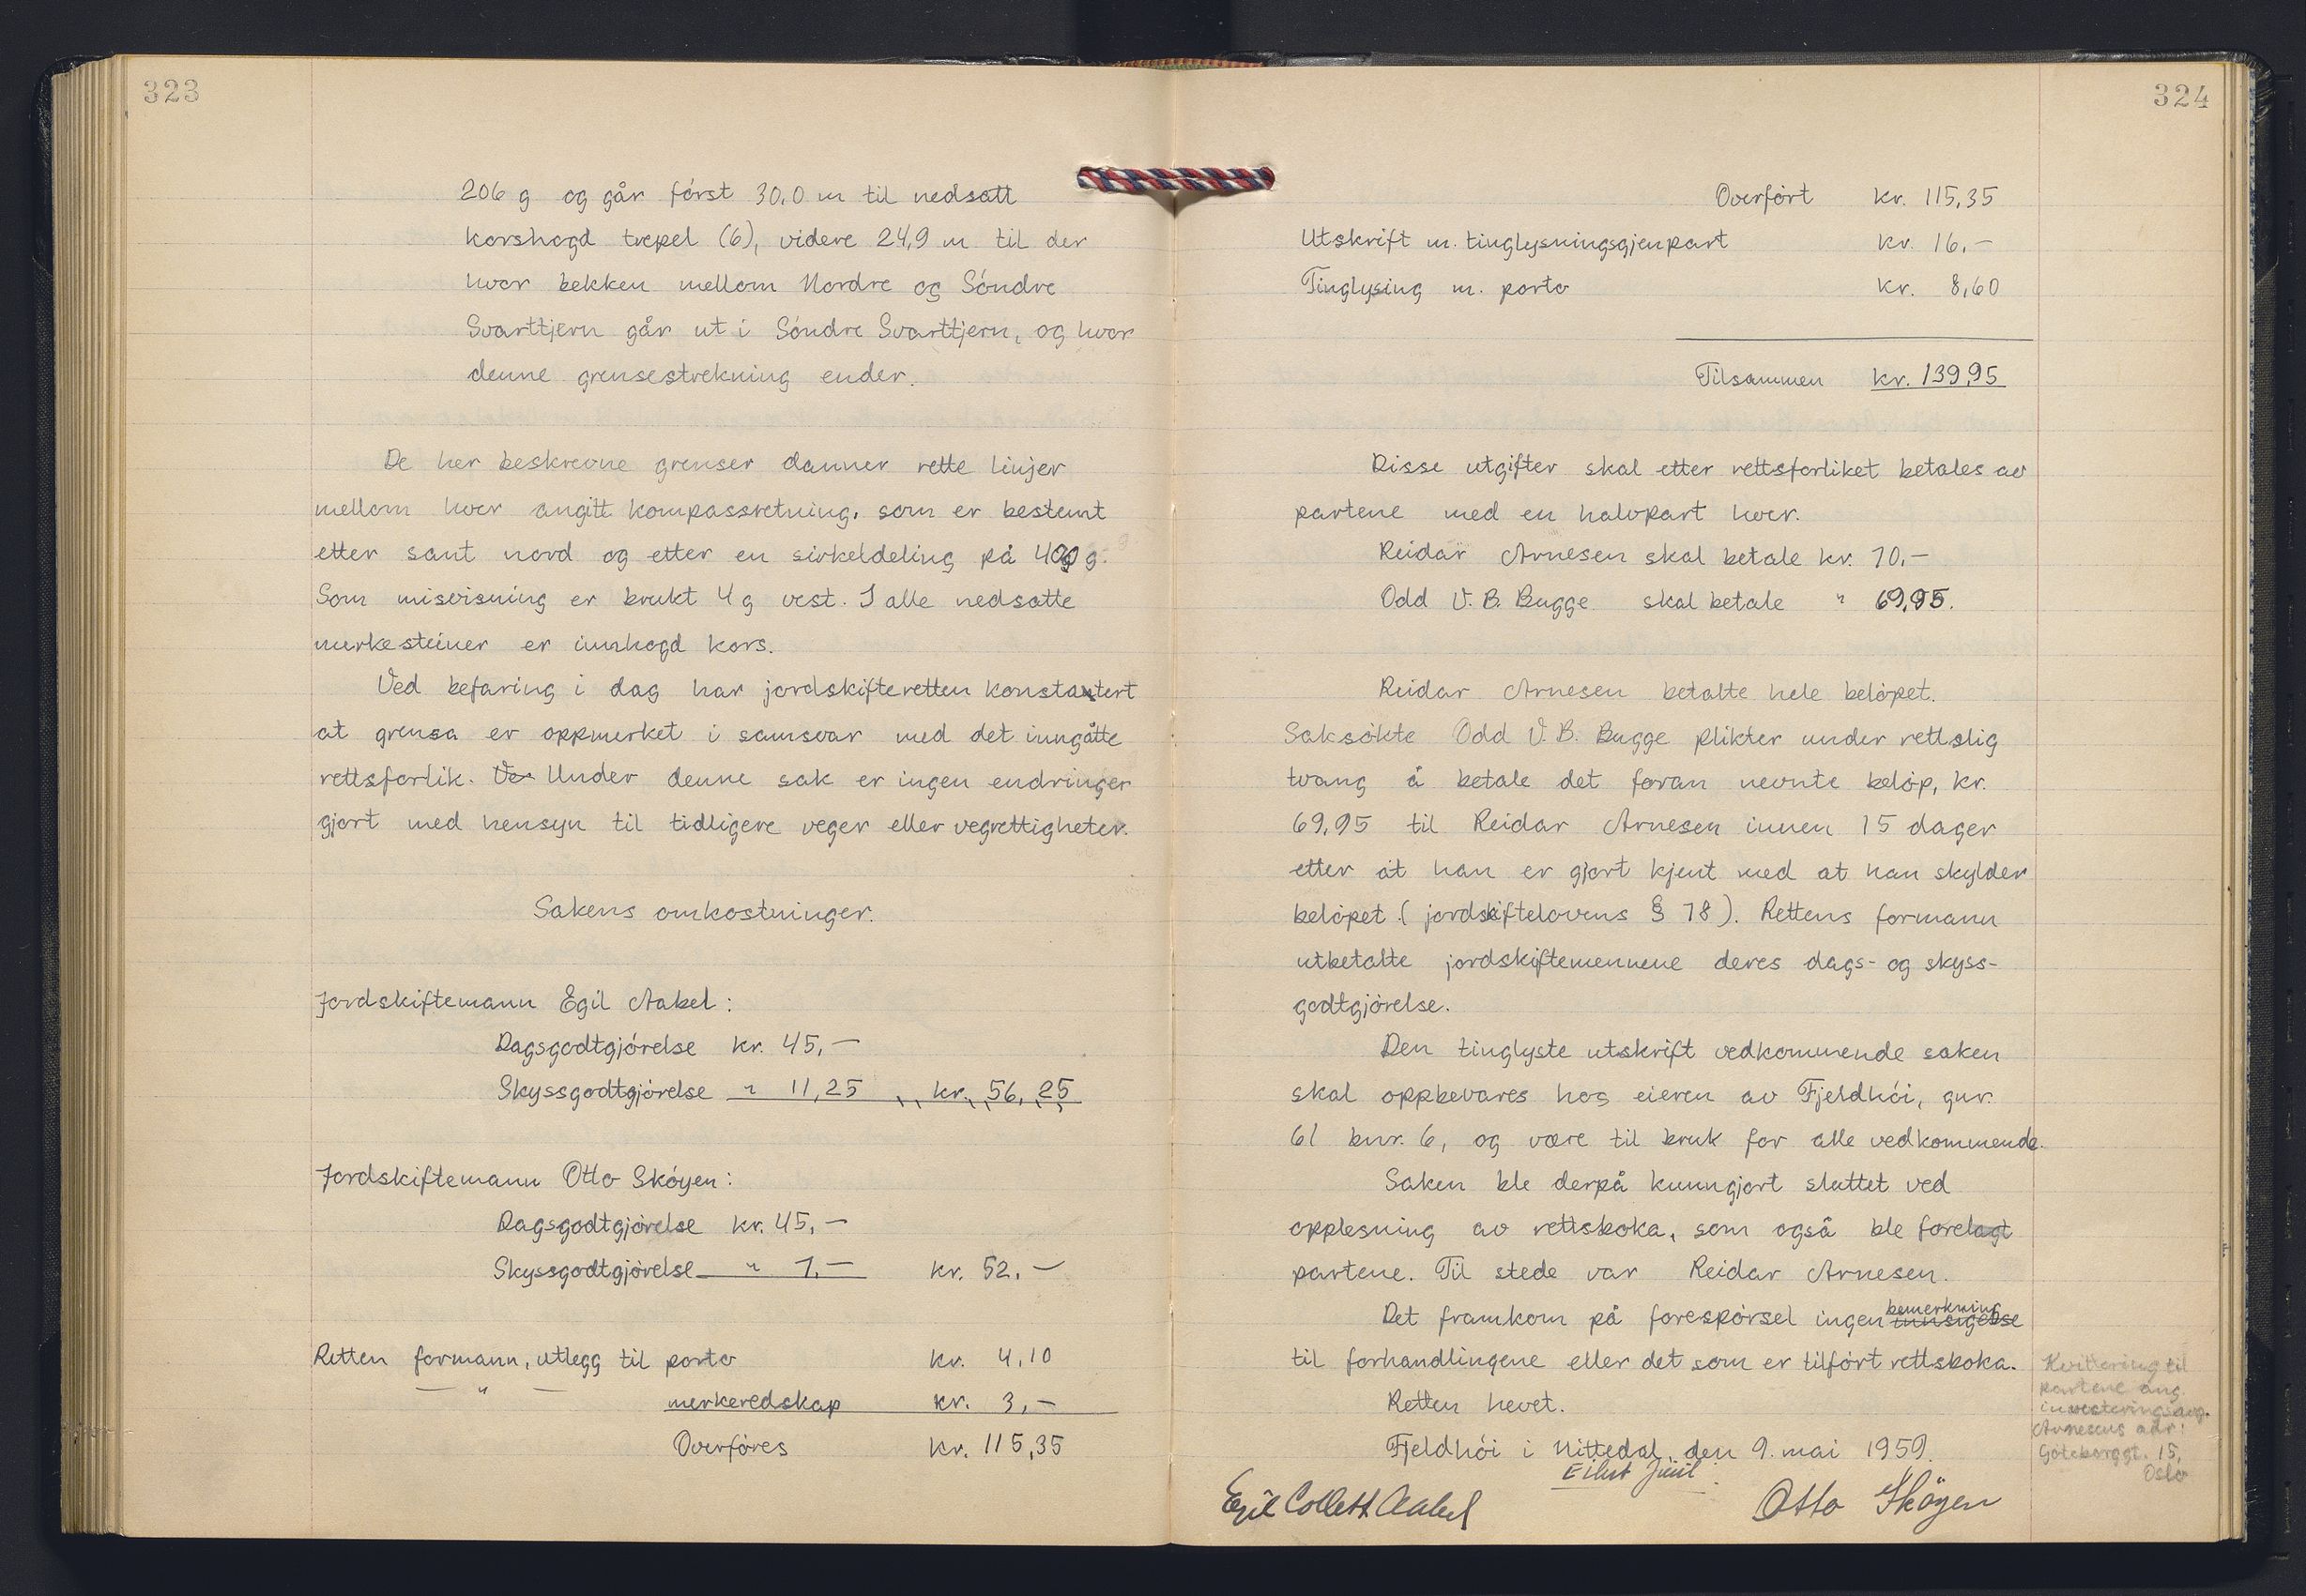 323
206 g og går först 30,0 m til nedsatt
korshogd trepel (6), videre 24,9 m til der
hvor bekken mellom Nordre og Söndre
Svarttjern går ut i Söndre Svarttjern, og hvor
denne grensestrekning ender.
De her beskrevne grenser danner rette linjer
mellom hver angitt kompassretning, som er bestemt
etter sant nord og etter en sirkeldeling på 400 g.
Som misvisning er brukt 4 g vest. I alle nedsatte
merkesteiner er innhogd kors.
Ved befaring i dag har jordskifteretten konstatert
at grensa er oppmerket i samsvar med det inngåtte
rettsforlik. Ve Under denne sak er ingen endringer
gjort med hensyn til tidligere veger eller vegrettigheter.
Sakens omkostninger.
Jordskiftemann Egil Aabel:
Dagsgodtgjörelse kr. 45,—
Skyssgodtgjörelse " 11,25 kr. 56,25
Jordskiftemann Otto Sköyen:
Dagsgodtgjörelse kr. 45,—
Skyssgodtgjörelse " 7,— kr. 52,—
Retten formann, utlegg til porto kr. 4,10
— " — merkeredskap kr. 3,—
Overföres kr. 115,35
324
Overfört kr. 115,35
Utskrift m. tinglysningsgjenpart kr. 16,—
Tinglysing m. porto kr. 8,60
Tilsammen kr. 139,95
Disse utgifter skal etter rettsforliket betales av
partene med en halvpart hver.
Reidar Arnesen skal betale kr. 70,—
Odd V. B. Bugge skal betale " 69,95.
Reidar Arnesen betalte hele belöpet.
Saksökte Odd V. B. Bugge plikter under rettslig
tvang å betale det foran nevnte belöp, kr.
69,95 til Reidar Arnesen innen 15 dager
etter at han er gjort kjent med at han skylder
belöpet (jordskiftelovens § 78). Rettens formann
utbetalte jordskiftemennene deres dags- og skyss-
godtgjörelse.
Den tinglyste utskrift vedkommende saken
skal oppbevares hos eieren av Fjeldhöi, gnr.
61 bnr. 6, og være til bruk for alle vedkommende.
Saken ble derpå kunngjort sluttet ved
opplesning av rettsboka, som også ble forelagt
partene. Til stede var Reidar Arnesen.
bemerkning
Det framkom på forespörsel ingen innsigelse
til forhandlingene eller det som er tilfört rettsboka.
Retten hevet.
Fjeldhöi i Nittedal, den 9. mai 1959.
Eilert Juul
Egil Collett Aabel Otto Sköyen
Kvittering til
partene ang.
investeringsavg.
Arnesens adr:
Göteborggt. 15,
Oslo